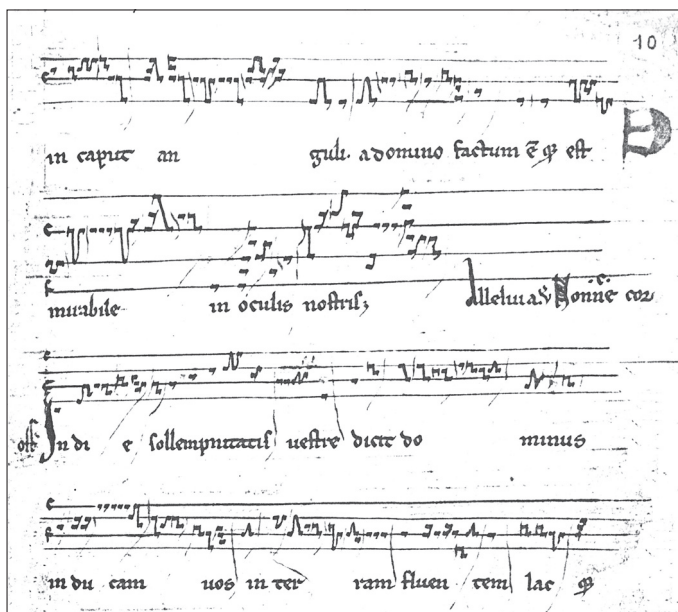 10
in caput an guli. a domino factum ē qͥ est
mirabile in oculis nostris;
Alleluia ℣ Nonne cor
off In di e sollempnitatis uestre dicit do minus
in du cam uos in ter ram fluen tem lac